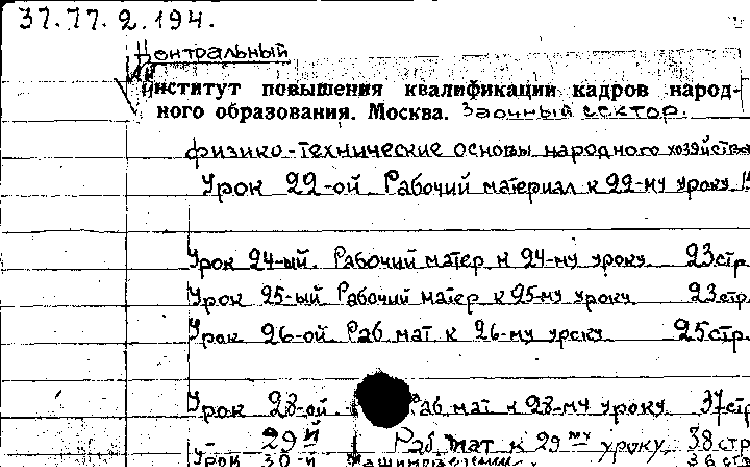 37.77.2.194.
Центральный
институт повышения квалификации кадров народ-
ного образования. Москва. Заочный сектор.
физико-технические основы народного хозяйства
Урок 22-ой Рабочий материал к 22-му уроку
Урок 24-ый. Рабочий матер к 24-му уроку 23стр.
Урок 25-ый Рабочий матер к 25-му уроку 23стр.
Урок 26-ой Раб мат к 26-му уроку 25стр.
Урок 28-ой Раб мат к 28-му уроку 37стр
Урок 29й Раб. мат к 29му уроку. 38стр
Урок 30-й 36стр